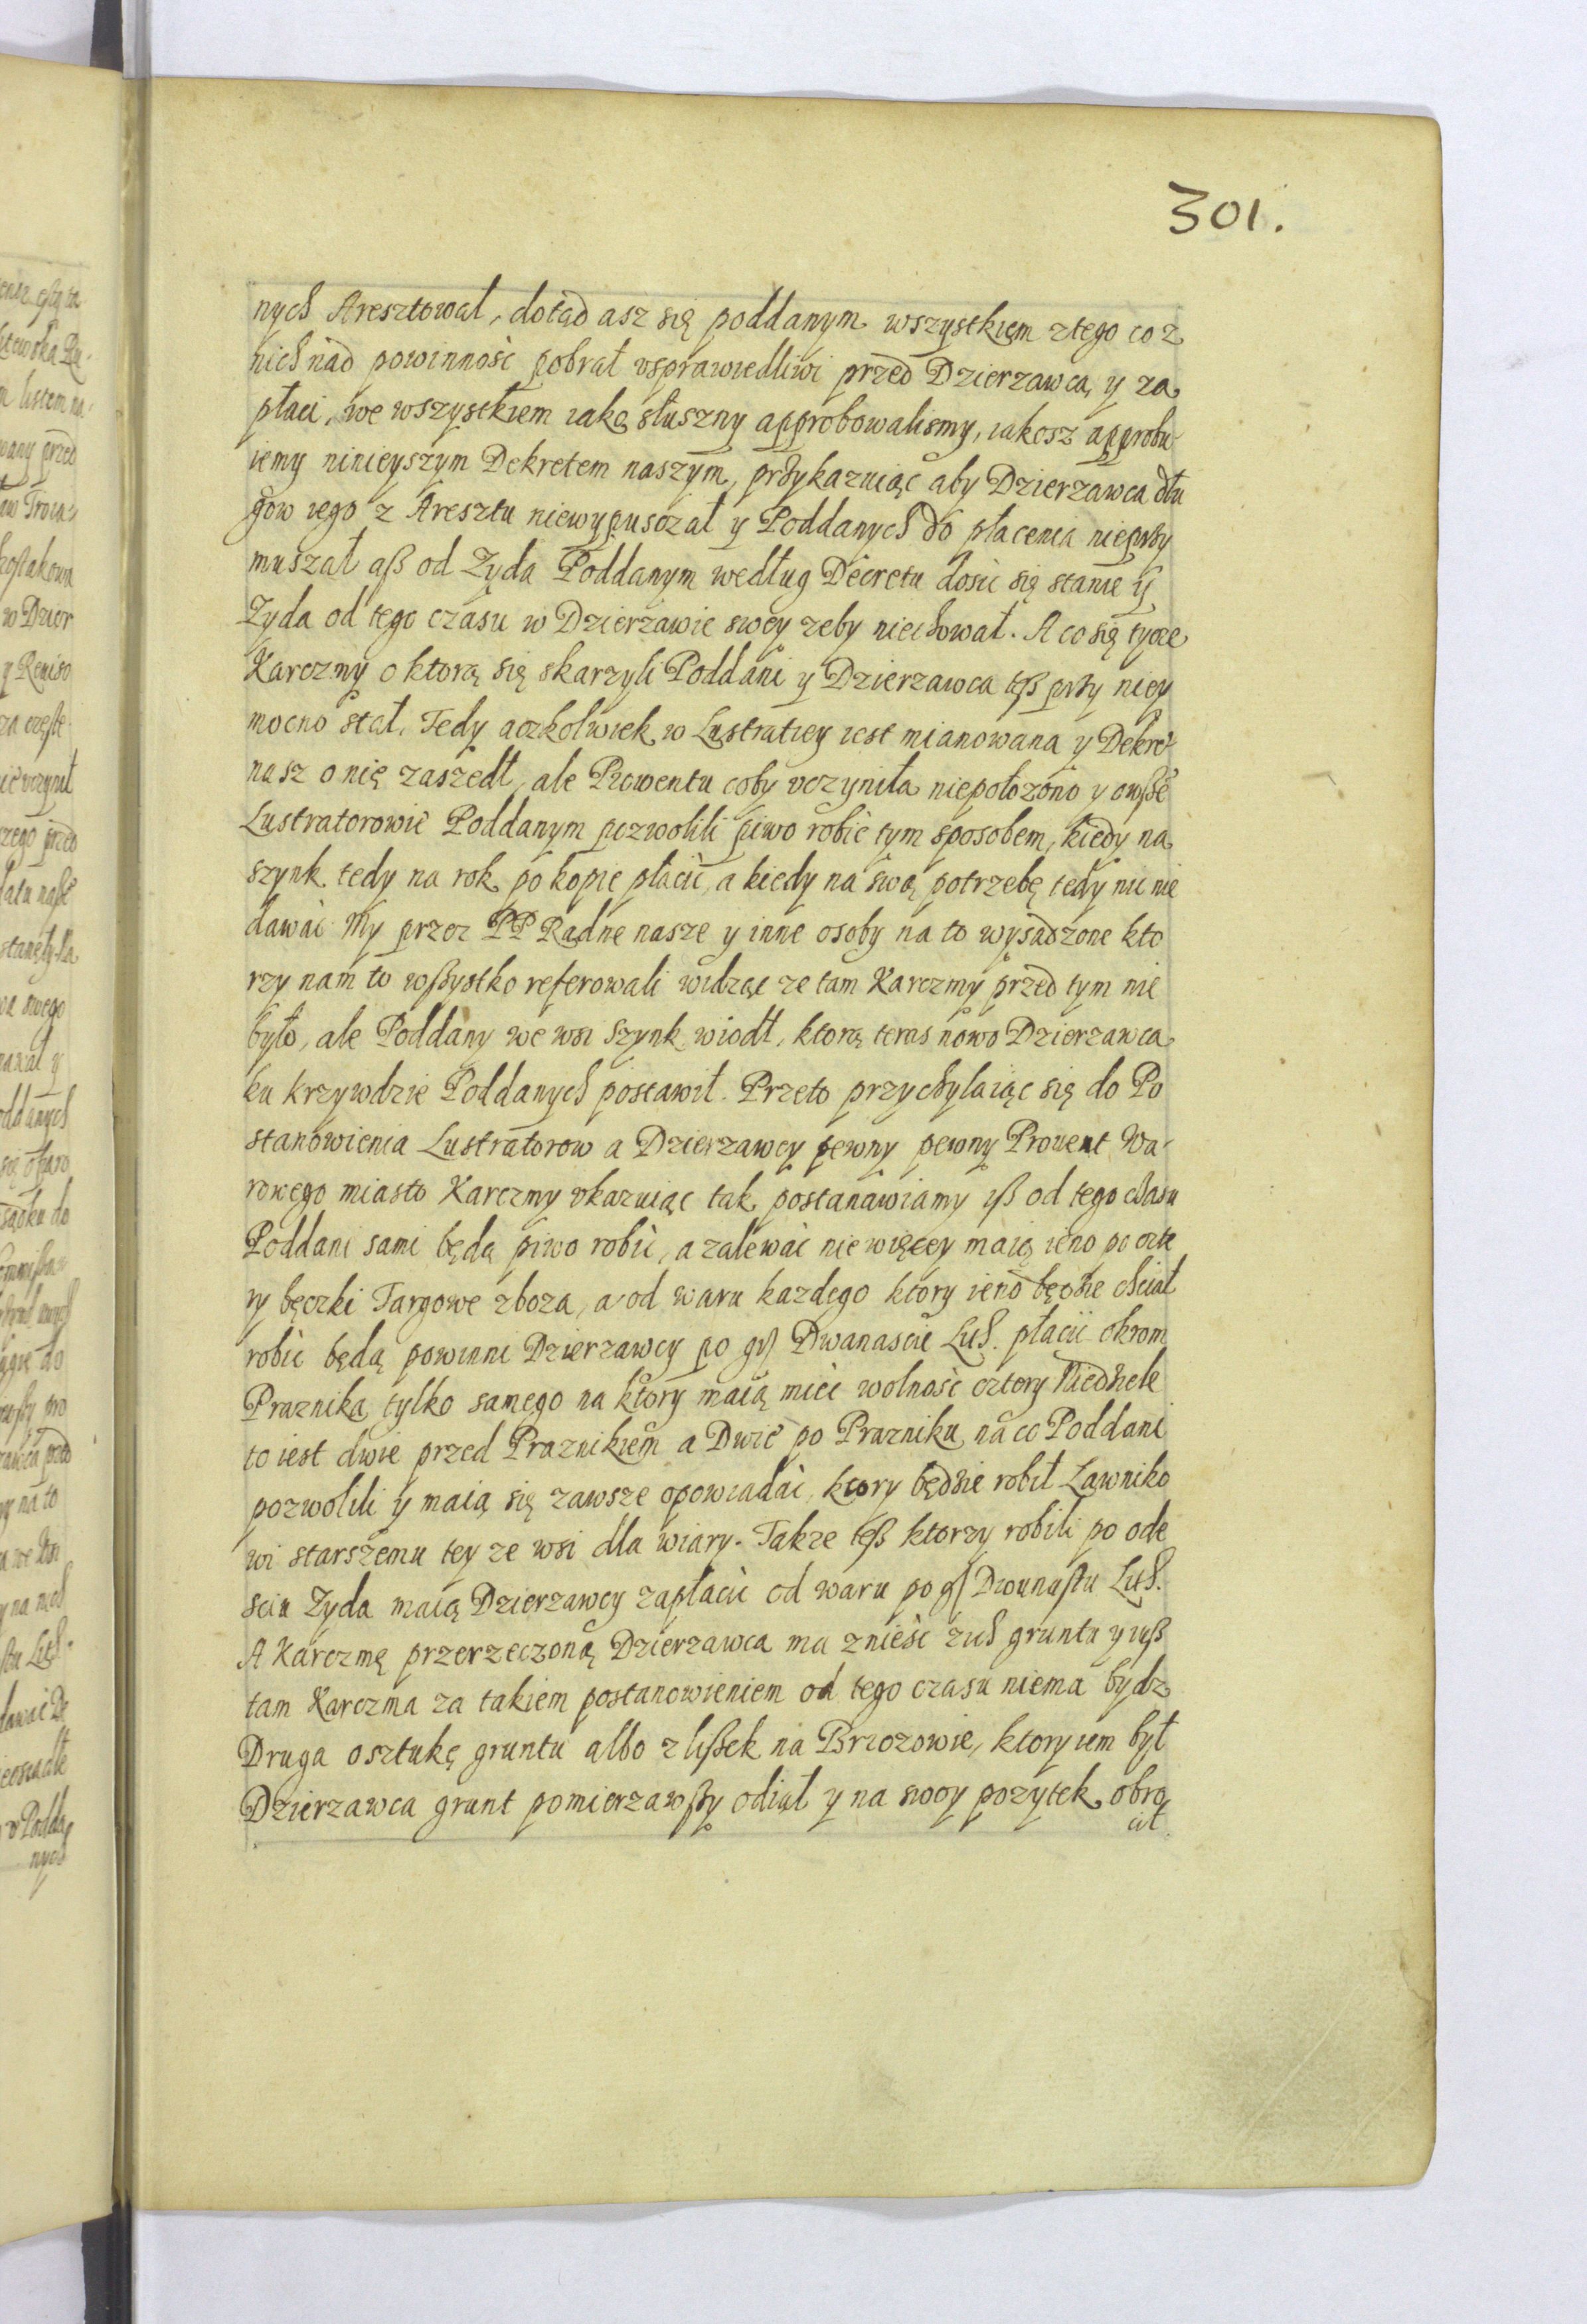 301.
nych Aresztował, dotąd asz się poddanym wszystkiem z tego co z
nich nad powinność pobrał vsprawiedliwi przed Dzierzawcą y za
płaci, we wszystkiem iako słuszny approbowalismy, iakosz approbu
iemy ninieyszym Dekretem naszym, przykazuiąc aby Dzierzawca dłu
gow iego z Aresztu niewypusczał y Poddanych do płacenia nieprzy
muszał aß od Zyda Poddanym według Decretu dosic się stanie y
Zyda od tego czasu w Dzierzawie swey zeby niechował. A co się tycze
Karczmy o ktorą się skarzyli Poddani y Dzierzawca teß przy niey
mocno stał, Tedy aczkolwiek w Lustratiey iest mianowana y Dekre
nasz o nię zaszedł, ale Prowentu coby vczyniła niepołozono y owße
Lustratorowie Poddanym pozwolili piwo robić tym sposobem, kiedy na
szynk tedy na rok po kopie płacić, a kiedy na swą potrzebę tedy nic nie
dawać My przez PP Radne nasze y inne osoby na to wysadzone kto
rzy nam to wßystko referowali widząc ze tam Karczmy przed tym nie
było, ale Poddany we wsi Szynk wiodł, ktorą teras nowo Dzierzawca
ku krzywdzie Poddanych postawił. Przeto przychylaiąc się do Po
stanowienia Lustratorow a Dzierzawcy pewny pewny Prouent Wa-
rowego miasto Karczmy vkazuiąc tak postanawiamy iß od tego czasu
Poddani sami będą piwo robić, a zalewać nie więcey maią ieno po czte
ry beczki Targowe zboza, a od waru kazdego ktory ieno będzie chciał
robić będą powinni Dzierzawcy po gß Dwanascie Lith. płacić okrom
Praznika tylko samego na ktory maią mieć wolność cztery Niedziele
to iest dwie przed Praznikiem a Dwie po Prazniku na co Poddani
pozwolili y maią się zawsze opowiadać, ktory będzie robił Ławniko
wi starszemu tey ze wsi dla wiary. Takze teß ktorzy robili po ode
sciu Zyda maią Dzierzawcy zapłacić od waru po gß Dwunastu Lith.
A Karczmę przerzeczoną Dzierzawca ma znieść z ich gruntu y iuß
tam Karczma za takiem postanowieniem od tego czasu niema bydz
Druga o sztukę gruntu albo z lißek na Brzozowie, ktory iem był
Dzierzawca grunt pomierzawßy odiął y na swoy pozytek obro
cił